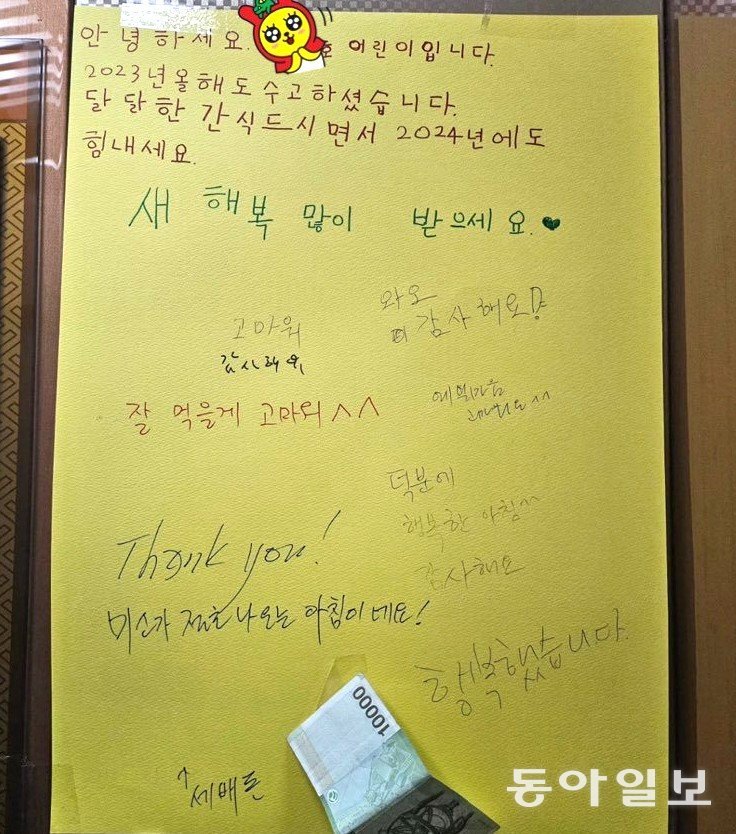 안녕하세요. 호 어린이입니다.
2023년 올해도 수고하셨습니다.
달달한 간식드시면서 2024년에도
힘내세요.
새 해 복 많이 받으세요.♥
와우
감사해요!
고마워
감사해요
잘 먹을게 고마워^^
예쁜마음
고마워요^^
덕분에
행복한 아침^^
감사해요
Thank you!
미소가 절로 나오는 아침이네요!
행복했습니다.
10000
↑세배돈
동아일보